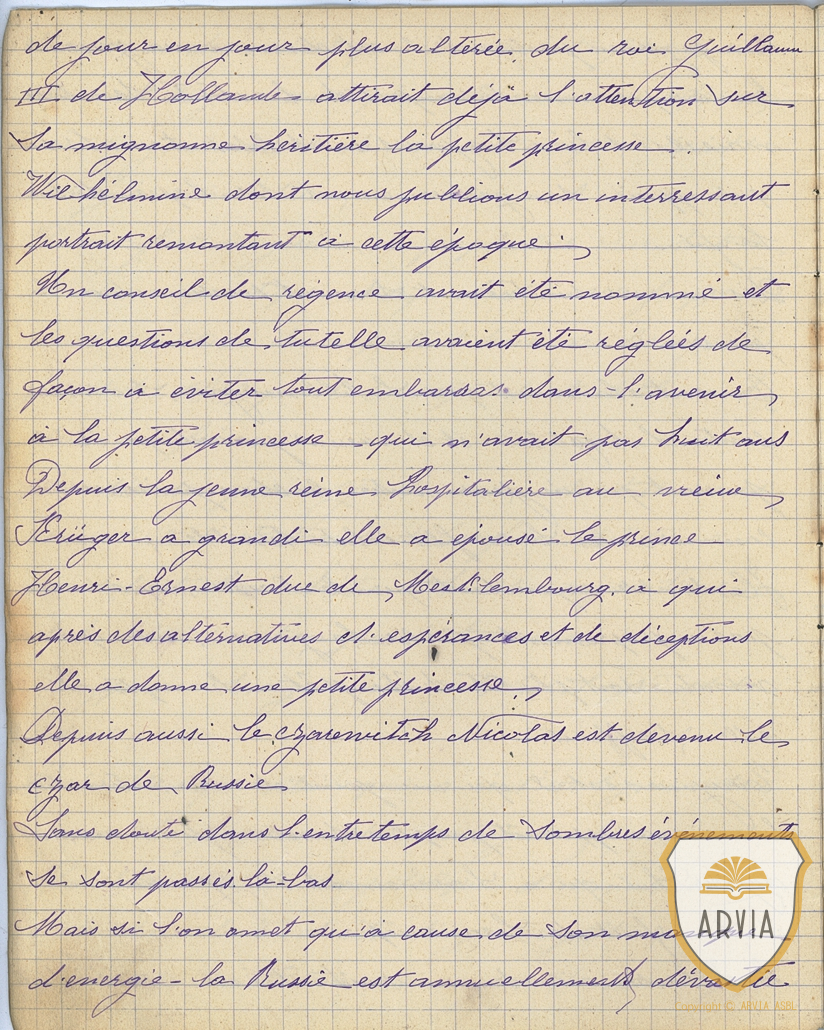 de jour en jour plus altérée du roi Guillaume
III de Hollande attirait déjà l'attention sur
sa mignonne héritière la petite princesse
Wilhélmine dont nous publions un interressant
portrait remontant à cette époque
Un conseil de régence avait été nommé et
les questions de tutelle avaient été réglées de
façon à éviter tout embarras dans l'avenir
à la petite princesse qui n'avait pas huit ans
Depuis la jeune reine hospitalière au vieux
Krüger a grandi elle a épousé le prince
Henri-Ernest duc de Mesklembourg à qui
après des alternatives d'espérances et de déceptions
elle a donne une petite princesse
Depuis aussi le czarewitch Nicolas est devenu le
czar de Russie
Sans doute dans l'entretemps de sombres événements
se sont passés là-bas
Mais si l'on omet qu'à cause de son
d'energie la Russie est annuellement dévastée
ARVIA
Copyright © ARVIA ASBL